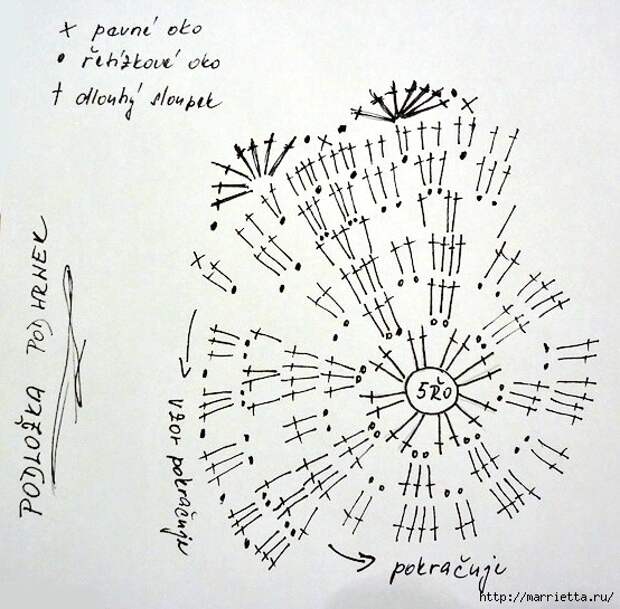 x pevné oko
• řetízkové oko
† dlouhý sloupek
PODLOŽKA POD HRNEK
5ŘO
vzor pokračuje
pokračuje
http://marrietta.ru/